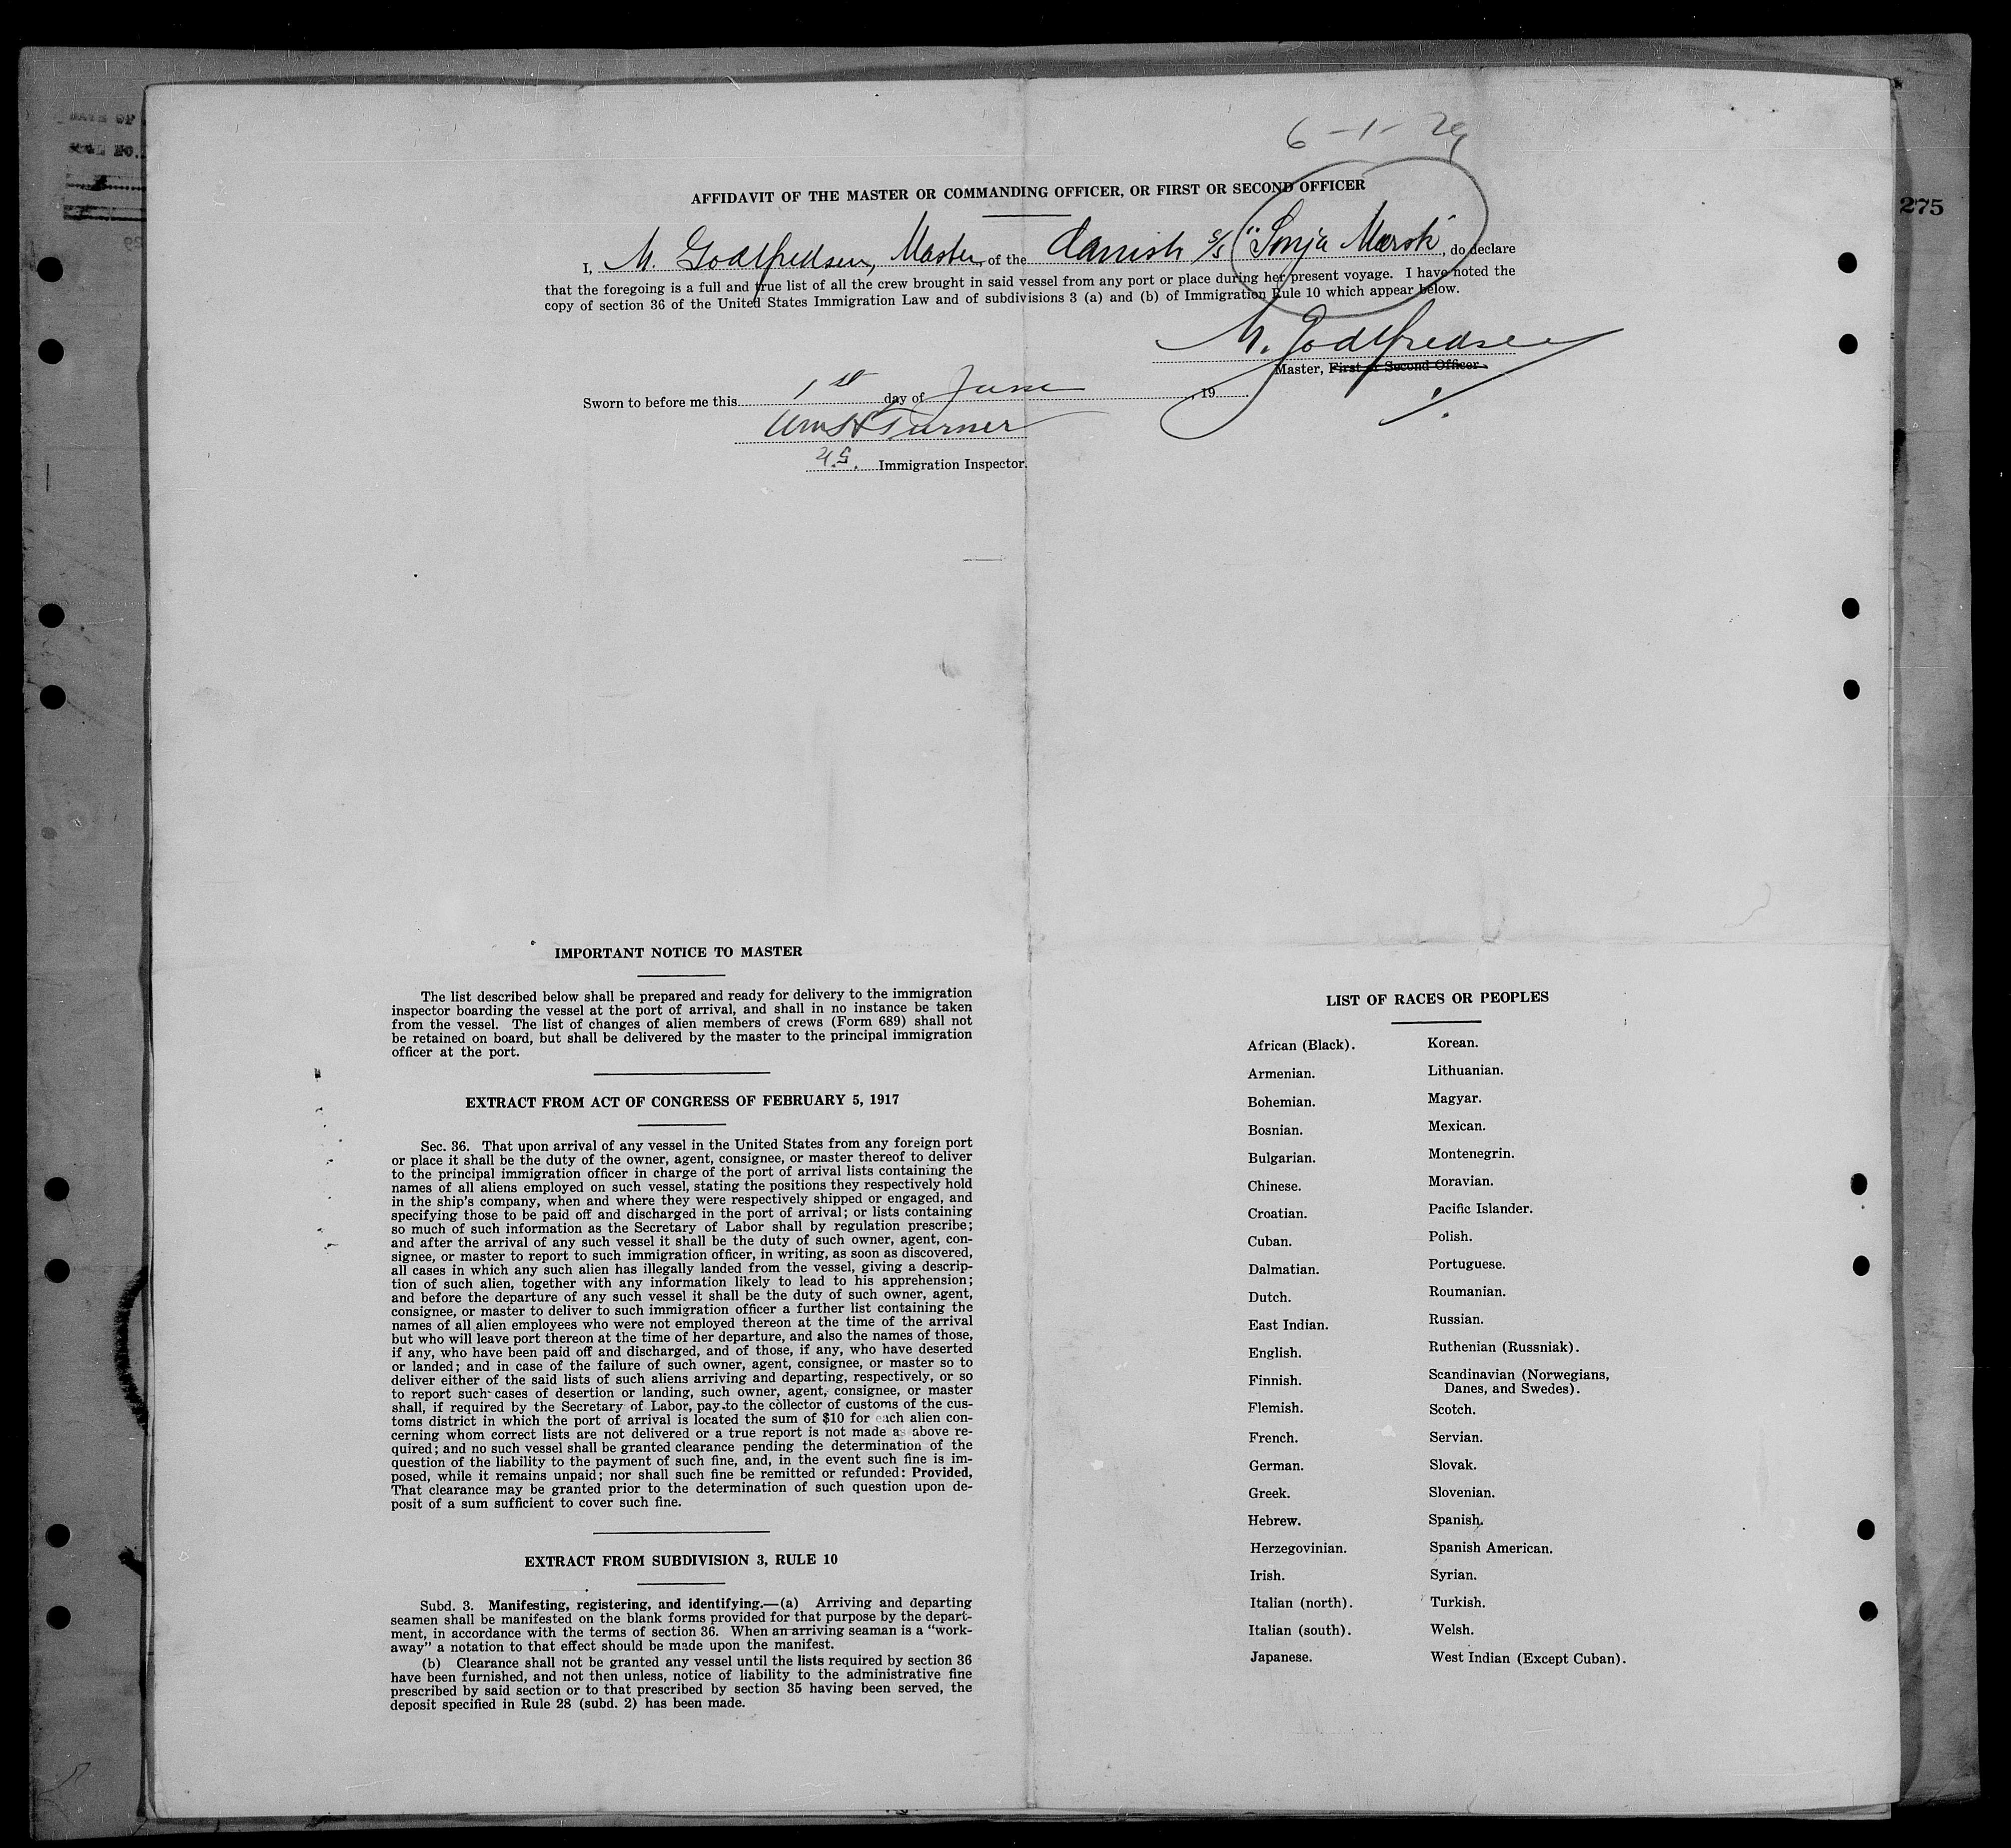 6-1-29
275
AFFIDAVIT OF THE MASTER OR COMMANDING OFFICER, OR FIRST OR SECOND OFFICER
I, M. Godtfredsen, Master, of the danish S/S "Sonja Mærsk", do declare
that the foregoing is a full and true list of all the crew brought in said vessel from any port or place during her present voyage. I have noted the
copy of section 36 of the United States Immigration Law and of subdivisions 3 (a) and (b) of Immigration Rule 10 which appear below.
M. Godtfredsen
Master, First or Second Officer.
Sworn to before me this 1st day of June, 19
Wm H Turner
U.S. Immigration Inspector.
IMPORTANT NOTICE TO MASTER
The list described below shall be prepared and ready for delivery to the immigration
inspector boarding the vessel at the port of arrival, and shall in no instance be taken
from the vessel. The list of changes of alien members of crews (Form 689) shall not
be retained on board, but shall be delivered by the master to the principal immigration
officer at the port.
EXTRACT FROM ACT OF CONGRESS OF FEBRUARY 5, 1917
Sec. 36. That upon arrival of any vessel in the United States from any foreign port
or place it shall be the duty of the owner, agent, consignee, or master thereof to deliver
to the principal immigration officer in charge of the port of arrival lists containing the
names of all aliens employed on such vessel, stating the positions they respectively hold
in the ship's company, when and where they were respectively shipped or engaged, and
specifying those to be paid off and discharged in the port of arrival; or lists containing
so much of such information as the Secretary of Labor shall by regulation prescribe;
and after the arrival of any such vessel it shall be the duty of such owner, agent, con-
signee, or master to report to such immigration officer, in writing, as soon as discovered,
all cases in which any such alien has illegally landed from the vessel, giving a descrip-
tion of such alien, together with any information likely to lead to his apprehension;
and before the departure of any such vessel it shall be the duty of such owner, agent,
consignee, or master to deliver to such immigration officer a further list containing the
names of all alien employees who were not employed thereon at the time of the arrival
but who will leave port thereon at the time of her departure, and also the names of those,
if any, who have been paid off and discharged, and of those, if any, who have deserted
or landed; and in case of the failure of such owner, agent, consignee, or master so to
deliver either of the said lists of such aliens arriving and departing, respectively, or so
to report such cases of desertion or landing, such owner, agent, consignee, or master
shall, if required by the Secretary of Labor, pay to the collector of customs of the cus-
toms district in which the port of arrival is located the sum of $10 for each alien con-
cerning whom correct lists are not delivered or a true report is not made as above re-
quired; and no such vessel shall be granted clearance pending the determination of the
question of the liability to the payment of such fine, and, in the event such fine is im-
posed, while it remains unpaid; nor shall such fine be remitted or refunded: Provided,
That clearance may be granted prior to the determination of such question upon de-
posit of a sum sufficient to cover such fine.
EXTRACT FROM SUBDIVISION 3, RULE 10
Subd. 3. Manifesting, registering, and identifying.—(a) Arriving and departing
seamen shall be manifested on the blank forms provided for that purpose by the depart-
ment, in accordance with the terms of section 36. When an arriving seaman is a "work-
away" a notation to that effect should be made upon the manifest.
(b) Clearance shall not be granted any vessel until the lists required by section 36
have been furnished, and not then unless, notice of liability to the administrative fine
prescribed by said section or to that prescribed by section 35 having been served, the
deposit specified in Rule 28 (subd. 2) has been made.
LIST OF RACES OR PEOPLES
African (Black).
Armenian.
Bohemian.
Bosnian.
Bulgarian.
Chinese.
Croatian.
Cuban.
Dalmatian.
Dutch.
East Indian.
English.
Finnish.
Flemish.
French.
German.
Greek.
Hebrew.
Herzegovinian.
Irish.
Italian (north).
Italian (south).
Japanese.
Korean.
Lithuanian.
Magyar.
Mexican.
Montenegrin.
Moravian.
Pacific Islander.
Polish.
Portuguese.
Roumanian.
Russian.
Ruthenian (Russniak).
Scandinavian (Norwegians,
Danes, and Swedes).
Scotch.
Servian.
Slovak.
Slovenian.
Spanish.
Spanish American.
Syrian.
Turkish.
Welsh.
West Indian (Except Cuban).